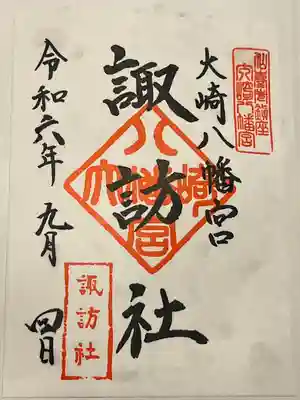 大崎八幡宮
大崎八幡宮
諏訪社
大崎八幡宮
令和六年 九月 四日
諏訪社